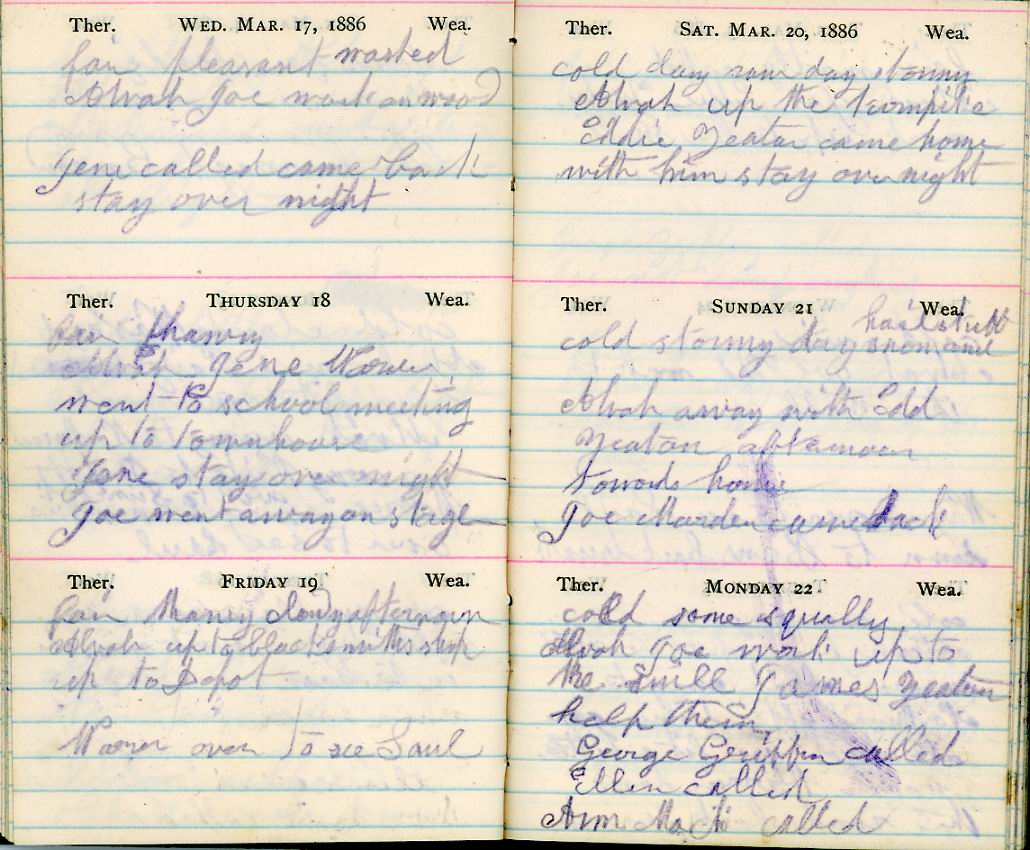 Ther. WED. MAR. 17, 1886 Wea.
fair pleasant washed
Alvah Joe work on wood
Gene called came back
stay over night
Ther. THURSDAY 18 Wea.
fair thawy
Alvah Gene
went to school meeting
up to townhouse
Gene stay over night
Joe went away on stage
Ther. FRIDAY 19 Wea.
fair thawy cloudy afternoon
Alvah up to blacksmiths shop
up to Depot
over to see Saul
Ther. SAT. MAR. 20, 1886 Wea.
cold day raw day stormy
Alvah up the turnpike
Eddie Yeaton came home
with him stay over night
Ther. SUNDAY 21 Wea.
hail stuff
cold stormy day snow and
Alvah away with Edd
Yeaton afternoon
towards home
Joe Marden came back
Ther. MONDAY 22 Wea.
cold some squally
Alvah Joe work up to
the James Yeaton
help them
George Griffin called
Ellen called
Ann Mack called